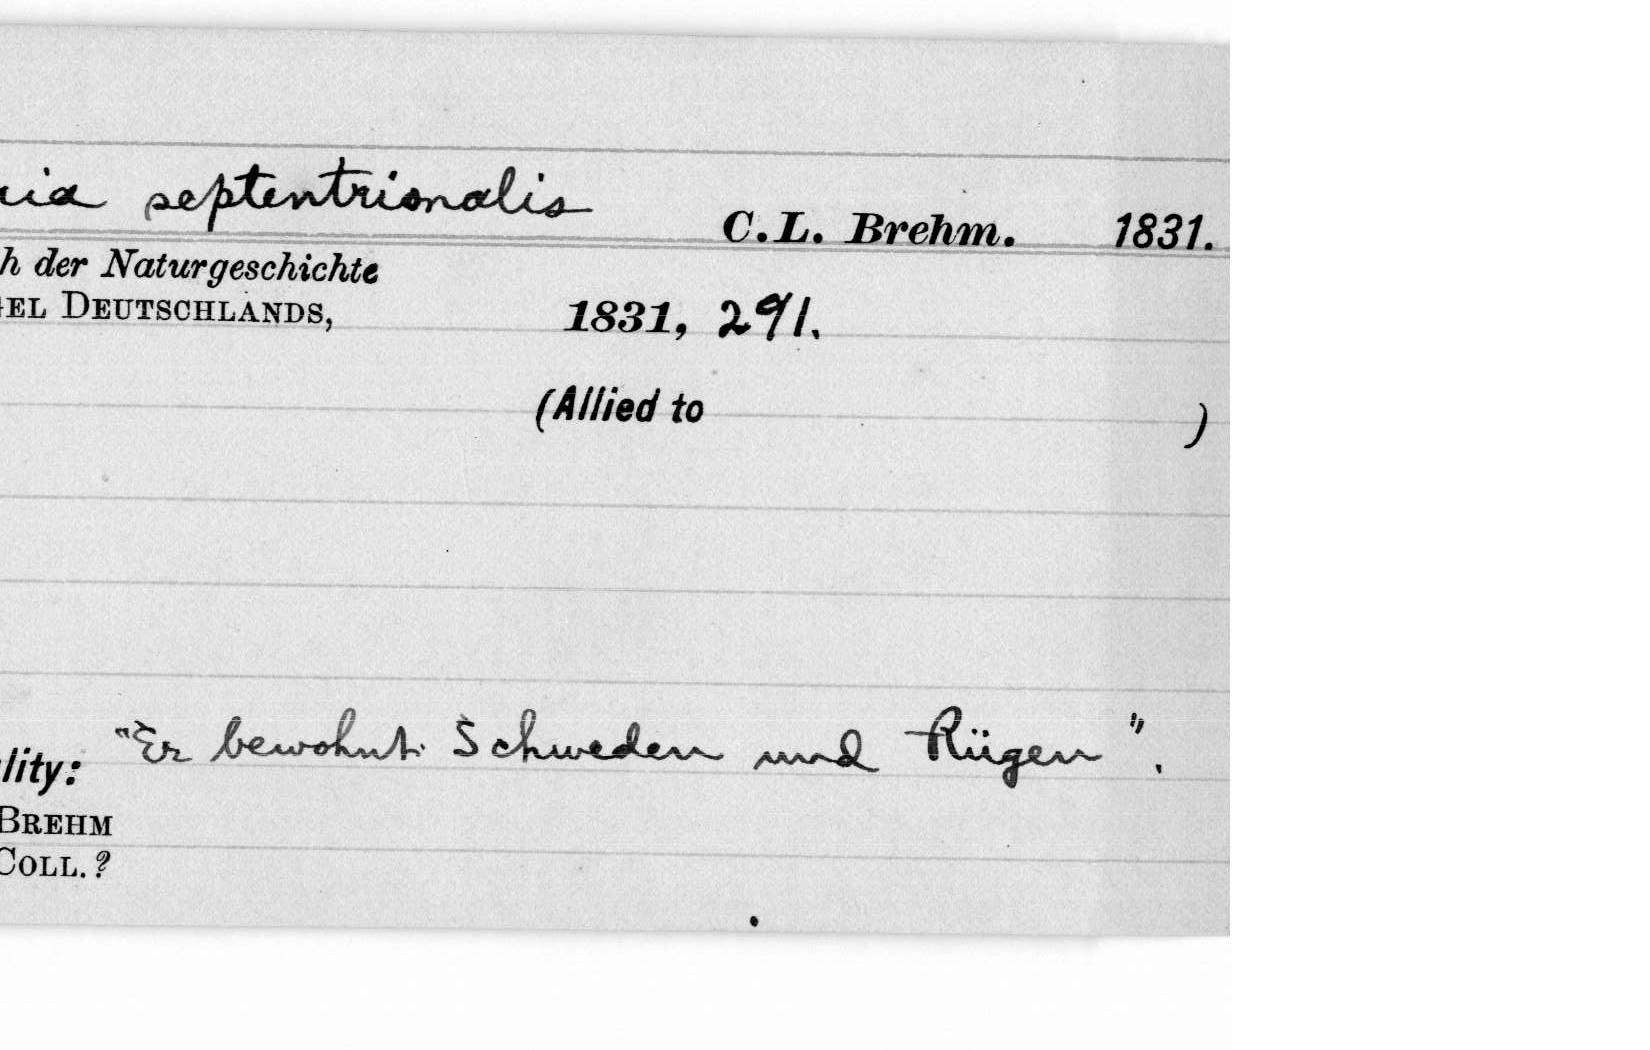 ria septentrionalis C.L. Brehm. 1831.
h der Naturgeschichte
GEL DEUTSCHLANDS, 1831, 291.
(Allied to )
"Er bewohnt Schweden und Rügen".
lity:
BREHM
COLL.?